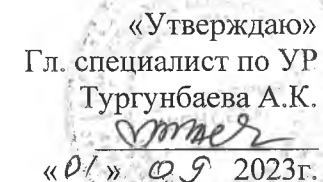 «Утверждаю»
Гл. специалист по УР
Тургунбаева А.К.
«01» 09 2023г.